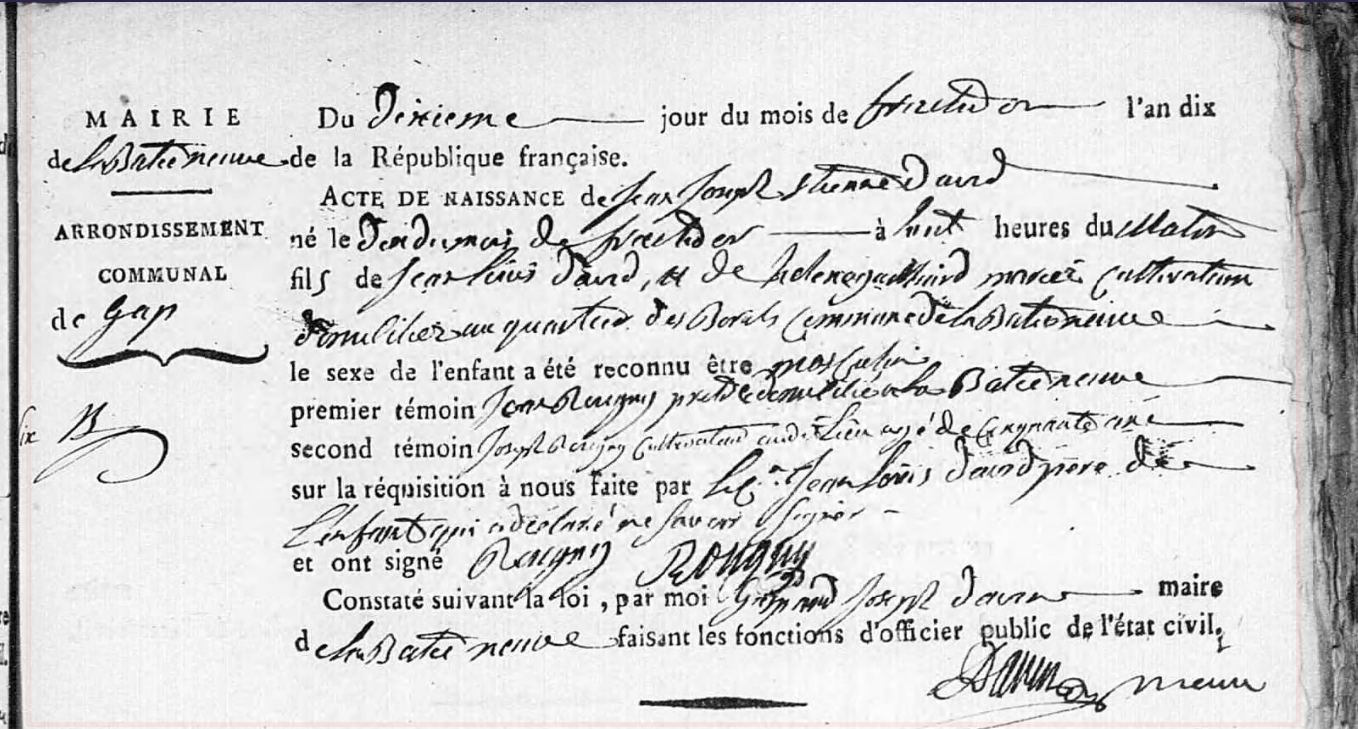 MAIRIE
de la Batie neuve
ARRONDISSEMENT
COMMUNAL
de Gap
Du dixieme jour du mois de fructidor l'an dix
de la République française.
ACTE DE NAISSANCE de Jean Joseph Etienne david
né le du mois de fructidor à huit heures du Matin
fils de Jean Louis david, et de helene mariés cultivateurs
domiciliez au quartier des Borels Commune de la Batie neuve
le sexe de l'enfant a été reconnu être masculin
premier témoin Jean Rougny domicilié a la Batie neuve
second témoin Joseph Rougny cultivateur audit Lieu agé de Cinquante
sur la réquisition à nous faite par le Cn. Jean Louis david père de
L'enfant qui a déclaré ne savoir signer
et ont signé Rougny Rougny
Constaté suivant la loi, par moi Joseph maire
de la Batie neuve faisant les fonctions d'officier public de l'état civil,
maire